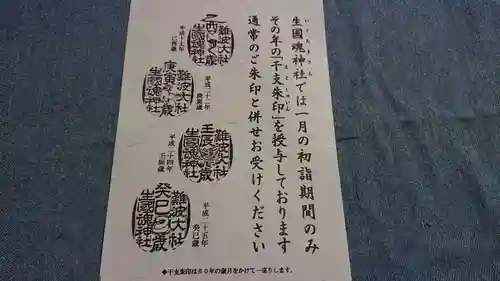 生國魂神社では一月の初詣期間のみ
いくたまさん
その年の「干支朱印」を授与しております
えとしゅいん
通常のご朱印と併せお受けください
難波大社
生國魂神社
平成二十二年
庚寅歳
難波大社
生國魂神社
庚寅
歳
平成二十四年
壬辰歳
難波大社
生國魂神社
壬辰
歳
平成二十五年
癸巳歳
難波大社
生國魂神社
癸巳
歳
◆干支朱印は60年の歳月をかけて一巡りします。